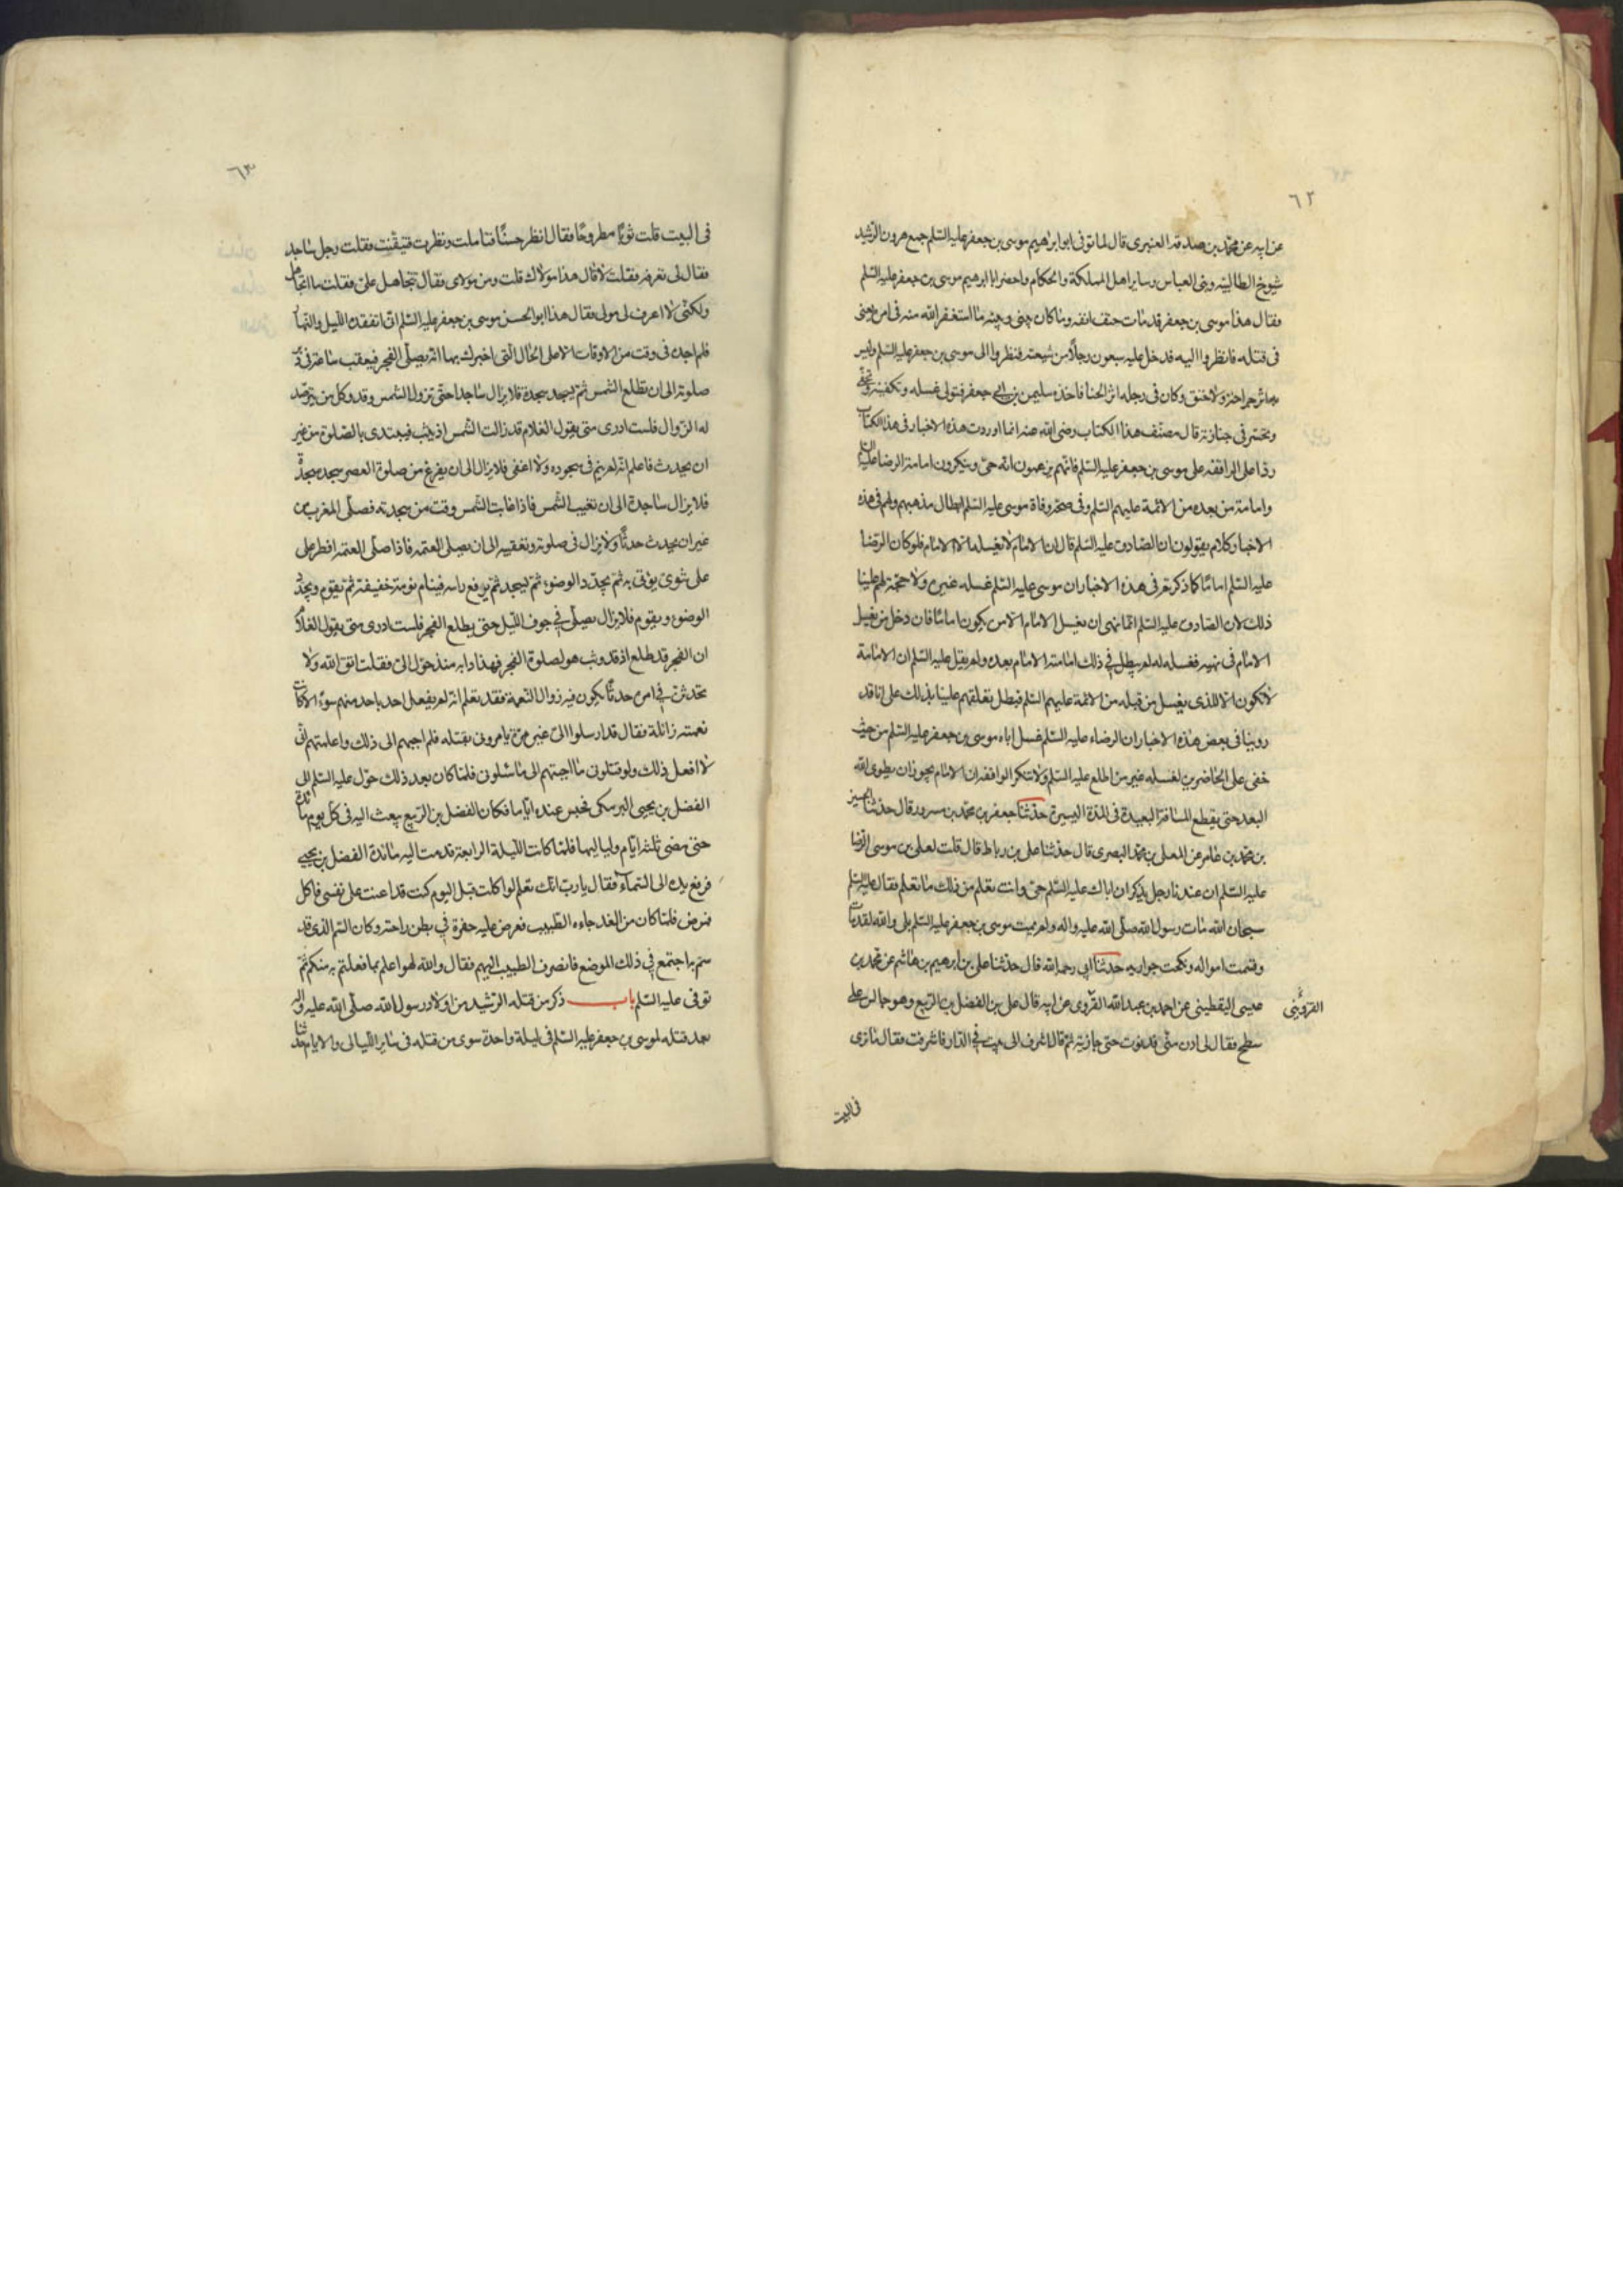 ٦٢
عن ابيه عن محمد بن صدقة العنبرى قال لما توفى ابو ابراهيم موسى بن جعفر عليه السلم جمع هرون الرشيد
شيوخ الطالبيه وبنى العباس وساير اهل المملكة والحكام واحضر ابا ابرهيم موسى بن جعفر عليه السلم
فقال هذا موسى بن جعفر قد مات حتف انفه وما كان بينى وبينه ما استغفر الله منه فى امره يعنى
فى قتله فانظروا اليه فدخل عليه سبعون رجلاً من شيعته فنظروا الى موسى بن جعفر عليه السلم وليس
به اثر جراحة ولا خنق وكان فى رجله اثر الحنا فاخذه سليمن بن ابى جعفر فتولى غسله وتكفينه وتحفى
وتحسر فى جنازته قال مصنف هذا الكتاب رضى الله عنه انما اوردت هذه الاخبار فى هذا الكتاب
ردا على الواقفه على موسى بن جعفر عليه السلم فانهم يزعمون انه حى وينكرون امامة الرضا عليه السلم
وامامة من بعده من الائمة عليهم السلم وفى صحة وفاة موسى عليه السلم ابطال مذهبهم ولهم فى هذه
الاخبار كلام يقولون ان الصادق عليه السلم قال ان الامام لا يغسله الا الامام فلو كان الرضا
عليه السلم اماما كما ذكرتم فى هذه الاخبار ان موسى عليه السلم غسله غيره ولا حجة لهم علينا
ذلك لان الصادق عليه السلم انما نهى ان يغسل الامام الا من يكون اماما فان دخل من يغسل
الامام فى نهيه فغسله له لم يبطل فى ذلك امامة الامام بعده ولم يقل عليه السلم ان الامامة
لا تكون الا للذى يغسل من قبله من الائمة عليهم السلم فبطل تعلقهم علينا بذلك على انا قد
روينا فى بعض هذه الاخبار ان الرضاء عليه السلم غسل اباه موسى بن جعفر عليه السلم من حيث
خفى على الحاضرين لغسله غير من اطلع عليه السلم ولا تنكر الواقفه ان الامام يجوز ان يطوى الله
البعد حتى يقطع المسافة البعيدة فى المدة اليسيرة حدثنا جعفر بن محمد بن مسرور قال حدثنا الحسين
بن محمد بن عامر عن المعلى بن محمد البصرى قال حدثنا على بن رباط قال قلت لعلى بن موسى الرضا
عليه السلم ان عندنا رجل يذكر ان اباك عليه السلم حى وانت تعلم من ذلك ما تعلم فقال عليه السلم
سبحان الله مات رسول الله صلى الله عليه واله ولم يميت موسى بن جعفر عليه السلم بلى والله لقد مات
وقسمت امواله ونكحت جواريه حدثنا ابى رحمه الله قال حدثنا على بن ابرهيم بن هاشم عن محمد بن
عيسى اليقطينى عن احمد بن عبد الله القروى عن ابيه قال على بن الفضل بن الربيع وهو جالس على
القزوينى
سطح فقال لى ادن منى فدنوت حتى حاذيته ثم قال اشرف الى بيت فى الدار فاشرفت فقال ما ترى
فى البيت
٦٣
فى البيت قلت ثوبا مطروحا فقال انظر حسنا فتاملت ونظرت فتيقنت فقلت رجل ساجد
فقال لى تعرفه فقلت لا قال هذا مولاك قلت ومن مولاى فقال تتجاهل على فقلت ما اتجاهل
ولكنى لا اعرف لى مولى فقال هذا ابو الحسن موسى بن جعفر عليه السلم انى اتفقده الليل والنهار
فلم اجده فى وقت من الاوقات الا على الحال التى اخبرك بها انه يصلى الفجر فيعقب ساعة فى دبر
صلوته الى ان تطلع الشمس ثم يسجد سجدة فلا يزال ساجدا حتى تزول الشمس وقد وكل من يترصد
له الزوال فلست ادرى متى يقول الغلام قد زالت الشمس اذ يثب فيبتدى بالصلوة من غير
ان يحدث فاعلم انه لم ينم فى سجوده ولا اغفى فلا يزال الى ان يفرغ من صلوة العصر سجد سجدة
فلا يزال ساجدة الى ان تغيب الشمس فاذا غابت الشمس وقت من سجدته فصلى المغرب من
غير ان يحدث حدثا ولا يزال فى صلوته وتعقيبه الى ان يصلى العتمه فاذا صلى العتمه افطر على
على شوى يؤتى به ثم يجدد الوضوء ثم ليسجد ثم يرفع راسه فينام نومة خفيفة ثم يقوم ويجدد
الوضوء ويقوم فلا يزال يصلى فى جوف الليل حتى يطلع الفجر فلست ادرى متى يقول الغلام
ان الفجر قد طلع اذ قد وثب هو لصلوة الفجر فهذا دابه منذ حول الى فقلت اتق الله ولا
تحدثن فى امره حدثا يكون فيه زوال النعمة فقد تعلم انه لم يفعل احد باحد منهم سوء الا كانت
نعمته زائلة فقال قد ارسلوا الى غير مرة يامرونى بقتله فلم اجبهم الى ذلك واعلمتهم انى
لا افعل ذلك ولو قتلونى ما اجبتهم الى ما سئلونى فلما كان بعد ذلك حول عليه السلم الى
الفضل بن يحيى البرمكى فحبس عنده اياما فكان الفضل بن الربيع يبعث اليه فى كل يوم مائدة
حتى مضى ثلثة ايام ولياليها فلما كانت الليلة الرابعة قدمت اليه مائدة الفضل بن يحيى
فرفع يده الى السماء فقال يا رب انك تعلم لو اكلت قبل اليوم كنت قد اعنت على نفسى فاكل
فمرض فلما كان من الغد جاءه الطبيب فعرض عليه حفرة فى بطن راحته وكان السم الذى قد
سم به اجتمع فى ذلك الموضع فانصرف الطبيب اليهم فقال والله لهو اعلم بما فعلتم به منكم ثم
توفى عليه السلم باب ذكر من قتله الرشيد من اولاد رسول الله صلى الله عليه واله
بعد قتله لموسى بن جعفر عليه السلم فى ليلة واحدة سوى من قتله فى ساير الليالى والايام حدثنا